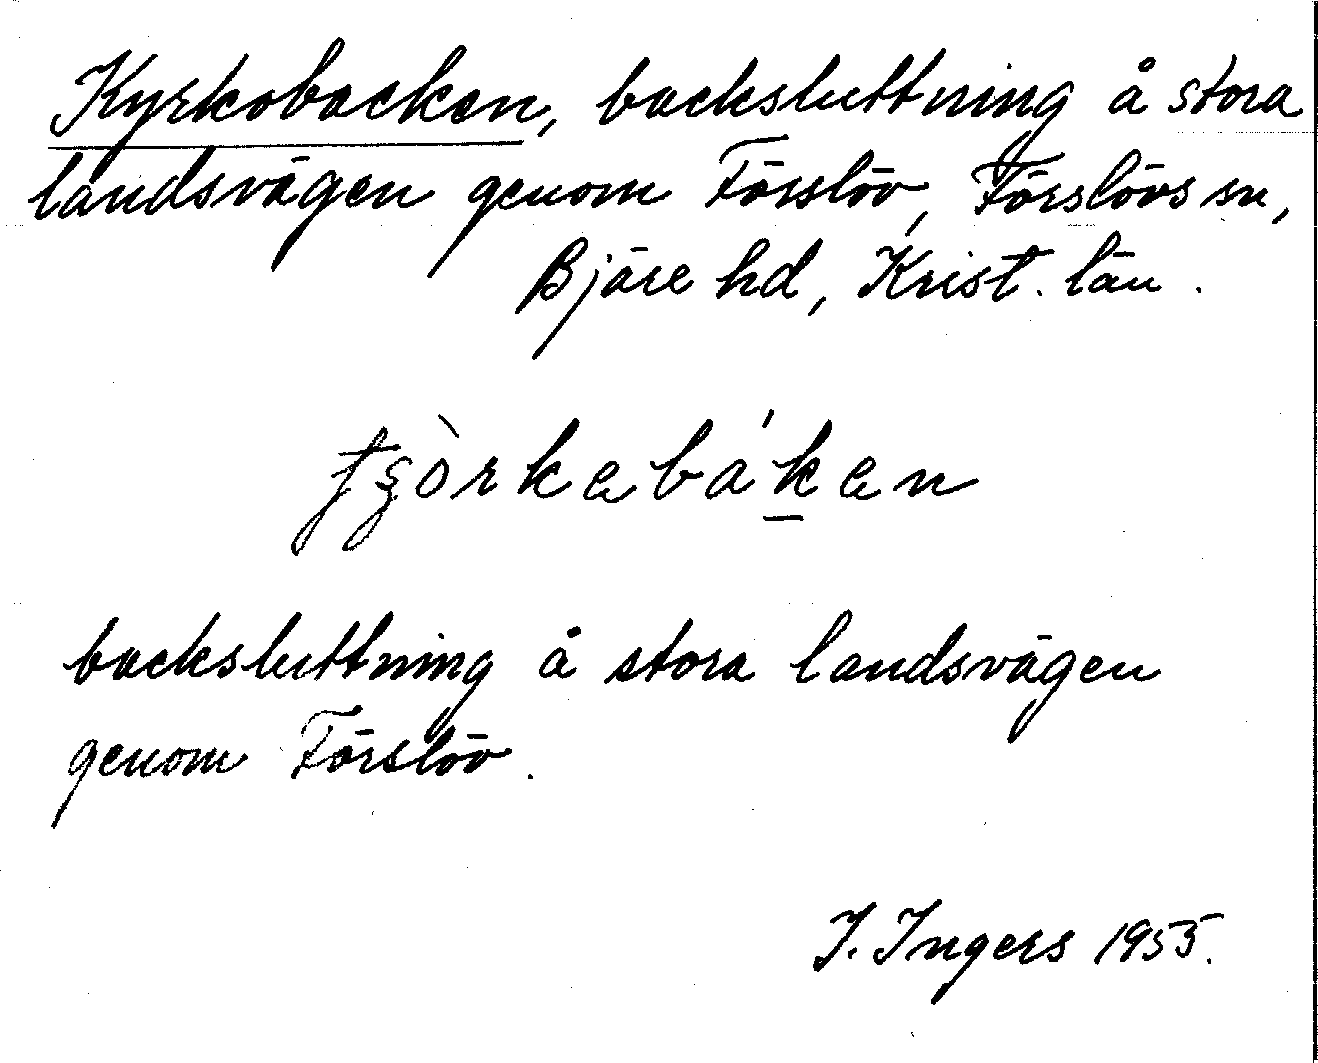 Kyrkobacken, backsluttning å stora
landsvägen genom Förslöv, Förslövs sn,
Bjäre hd, Krist. län.
backsluttning å stora landsvägen
genom Förslöv.
I. Ingers 1955.